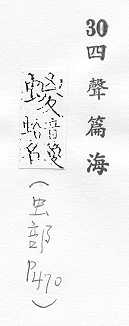 30 四聲篇海
音
蛤名
（虫部 P470）